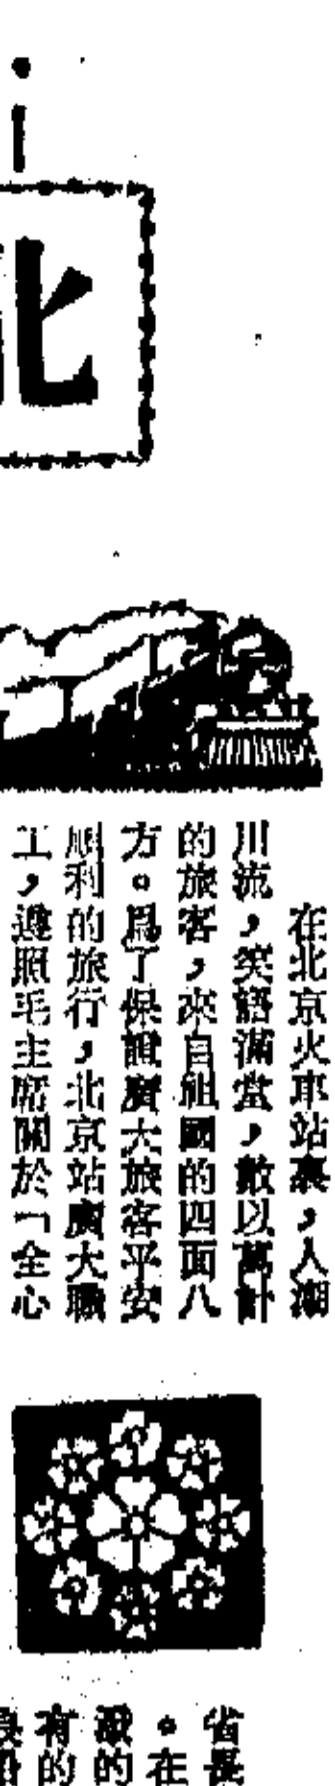 北
在北京火車站裏，人潮
川流，笑語滿堂，數以萬計
的旅客，來自祖國的四面八
方。爲了保證廣大旅客平安
順利的旅行，北京站廣大職
工，遵照毛主席關於「全心
省長
。在
的
有的